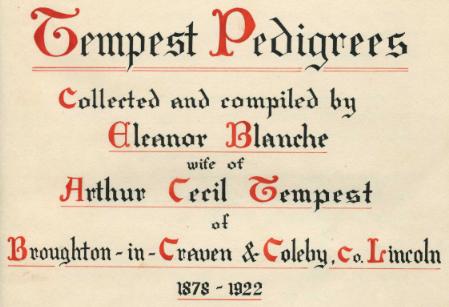 Tempest Pedigrees
Collected and compiled by
Eleanor Blanche
wife of
Arthur Cecil Tempest
of
Broughton-in-Craven & Coleby, Co. Lincoln
1878-1922